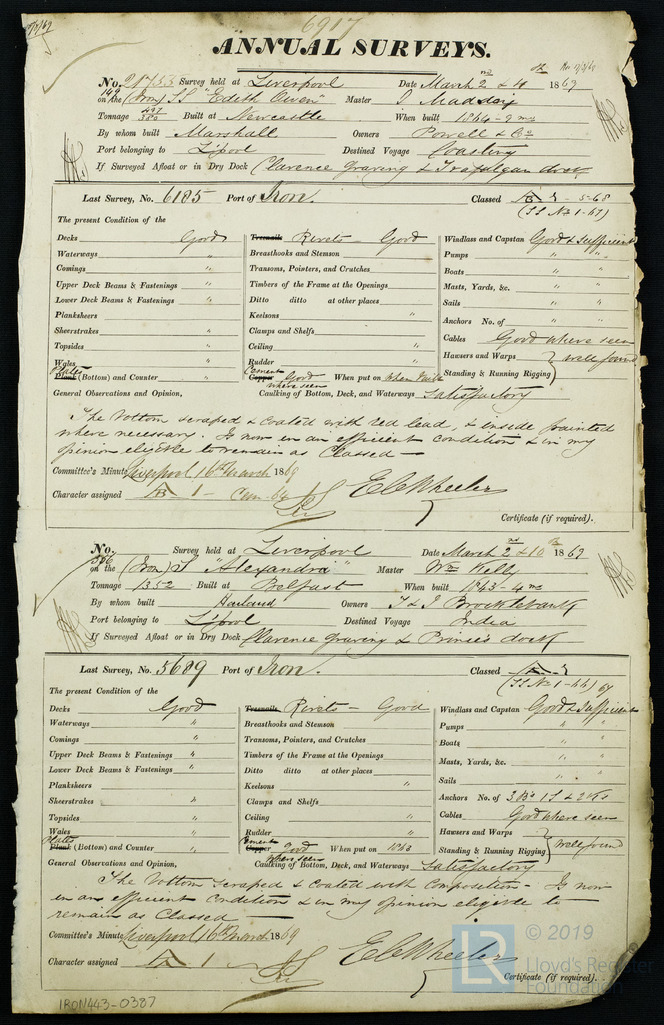 6917
ANNUAL SURVEYS.
No. 21753 Survey held at Liverpool Date March 2nd & 4th 1869
149 on the (Iron) SS "Edith Owen" Master
Tonnage 497 380 Built at Newcastle When built 1864-9 mo
By whom built Marshall Owners Powell & Co
Port belonging to L'pool Destined Voyage Coasting
If Surveyed Afloat or in Dry Dock Clarence Graving & Trafalgar dock
Last Survey, No. 6185 Port of Iron. Classed A B 1 - 5-68
(SS No 1-67)
The present Condition of the
Decks Good
Waterways "
Comings "
Upper Deck Beams & Fastenings "
Lower Deck Beams & Fastenings "
Planksheers
Sheerstrakes "
Topsides "
Wales "
Plates
Plank (Bottom) and Counter "
Treenails Rivets - Good
Breasthooks and Stemson
Transoms, Pointers, and Crutches
Timbers of the Frame at the Openings
Ditto ditto at other places
Keelsons "
Clamps and Shelfs
Ceiling "
Rudder "
Cement
Copper Good When put on When built
where seen
Windlass and Capstan Good & Sufficient
Pumps " "
Boats " "
Masts, Yards, &c. " "
Sails " "
Anchors No. of " "
Cables Good where seen
Hawsers and Warps
Standing & Running Rigging } well found
General Observations and Opinion, Caulking of Bottom, Deck, and Waterways Satisfactory
The Bottom scraped & coated with red lead, & inside painted
where necessary. Is now in an efficient condition & in my
opinion eligible to remain as Classed -
Committee's Minute Liverpool 16th March 1869
Character assigned A B 1 - E C Wheeler
Certificate (if required).
No. 596 Survey held at Liverpool Date March 2nd & 10th 1869
on the (Iron) S "Alexandra" Master Wm Kelly
Tonnage 1352 Built at Belfast When built 1863-4 mo
By whom built Harland Owners T & J Brocklebank
Port belonging to L'pool Destined Voyage India
If Surveyed Afloat or in Dry Dock Clarence Graving & Princes dock
Last Survey, No. 5689 Port of Iron. Classed A 1
(SS No 1-66) 67
The present Condition of the
Decks Good
Waterways "
Comings "
Upper Deck Beams & Fastenings "
Lower Deck Beams & Fastenings "
Planksheers
Sheerstrakes "
Topsides "
Wales "
Plates
Plank (Bottom) and Counter "
Treenails Rivets - Good
Breasthooks and Stemson
Transoms, Pointers, and Crutches
Timbers of the Frame at the Openings
Ditto ditto at other places
Keelsons "
Clamps and Shelfs
Ceiling "
Rudder "
Cement
Copper Good When put on 1863
where seen
Windlass and Capstan Good & Sufficient
Pumps " "
Boats " "
Masts, Yards, &c. " "
Sails " "
Anchors No. of 3 Brs 1 S & 2 Ks
Cables Good where seen
Hawsers and Warps
Standing & Running Rigging } well found
General Observations and Opinion, Caulking of Bottom, Deck, and Waterways Satisfactory
The Bottom scraped & coated with composition - Is now
in an efficient condition & in my opinion eligible to
remain as Classed
Committee's Minute Liverpool 16th March 1869
Character assigned A 1 - E C Wheeler
Certificate (if required).
IRON443-0387
LR © 2019
Lloyd's Register
Foundation